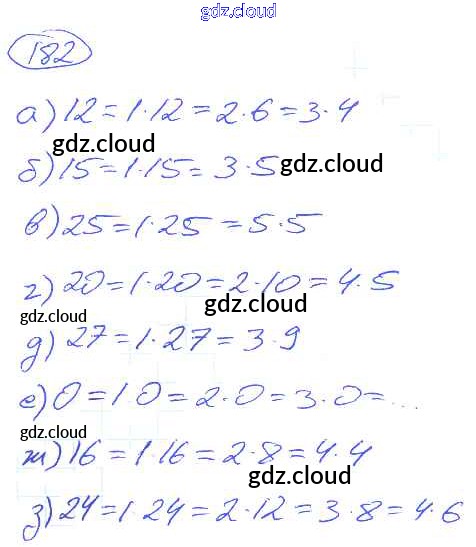 gdz.cloud
182
а) 12 = 1·12 = 2·6 = 3·4
gdz.cloud
б) 15 = 1·15 = 3·5 gdz.cloud
в) 25 = 1·25 = 5·5
г) 20 = 1·20 = 2·10 = 4·5
gdz.cloud gdz.cloud
д) 27 = 1·27 = 3·9
е) 0 = 1·0 = 2·0 = 3·0 = ...
gdz.cloud
ж) 16 = 1·16 = 2·8 = 4·4
gdz.cloud
з) 24 = 1·24 = 2·12 = 3·8 = 4·6